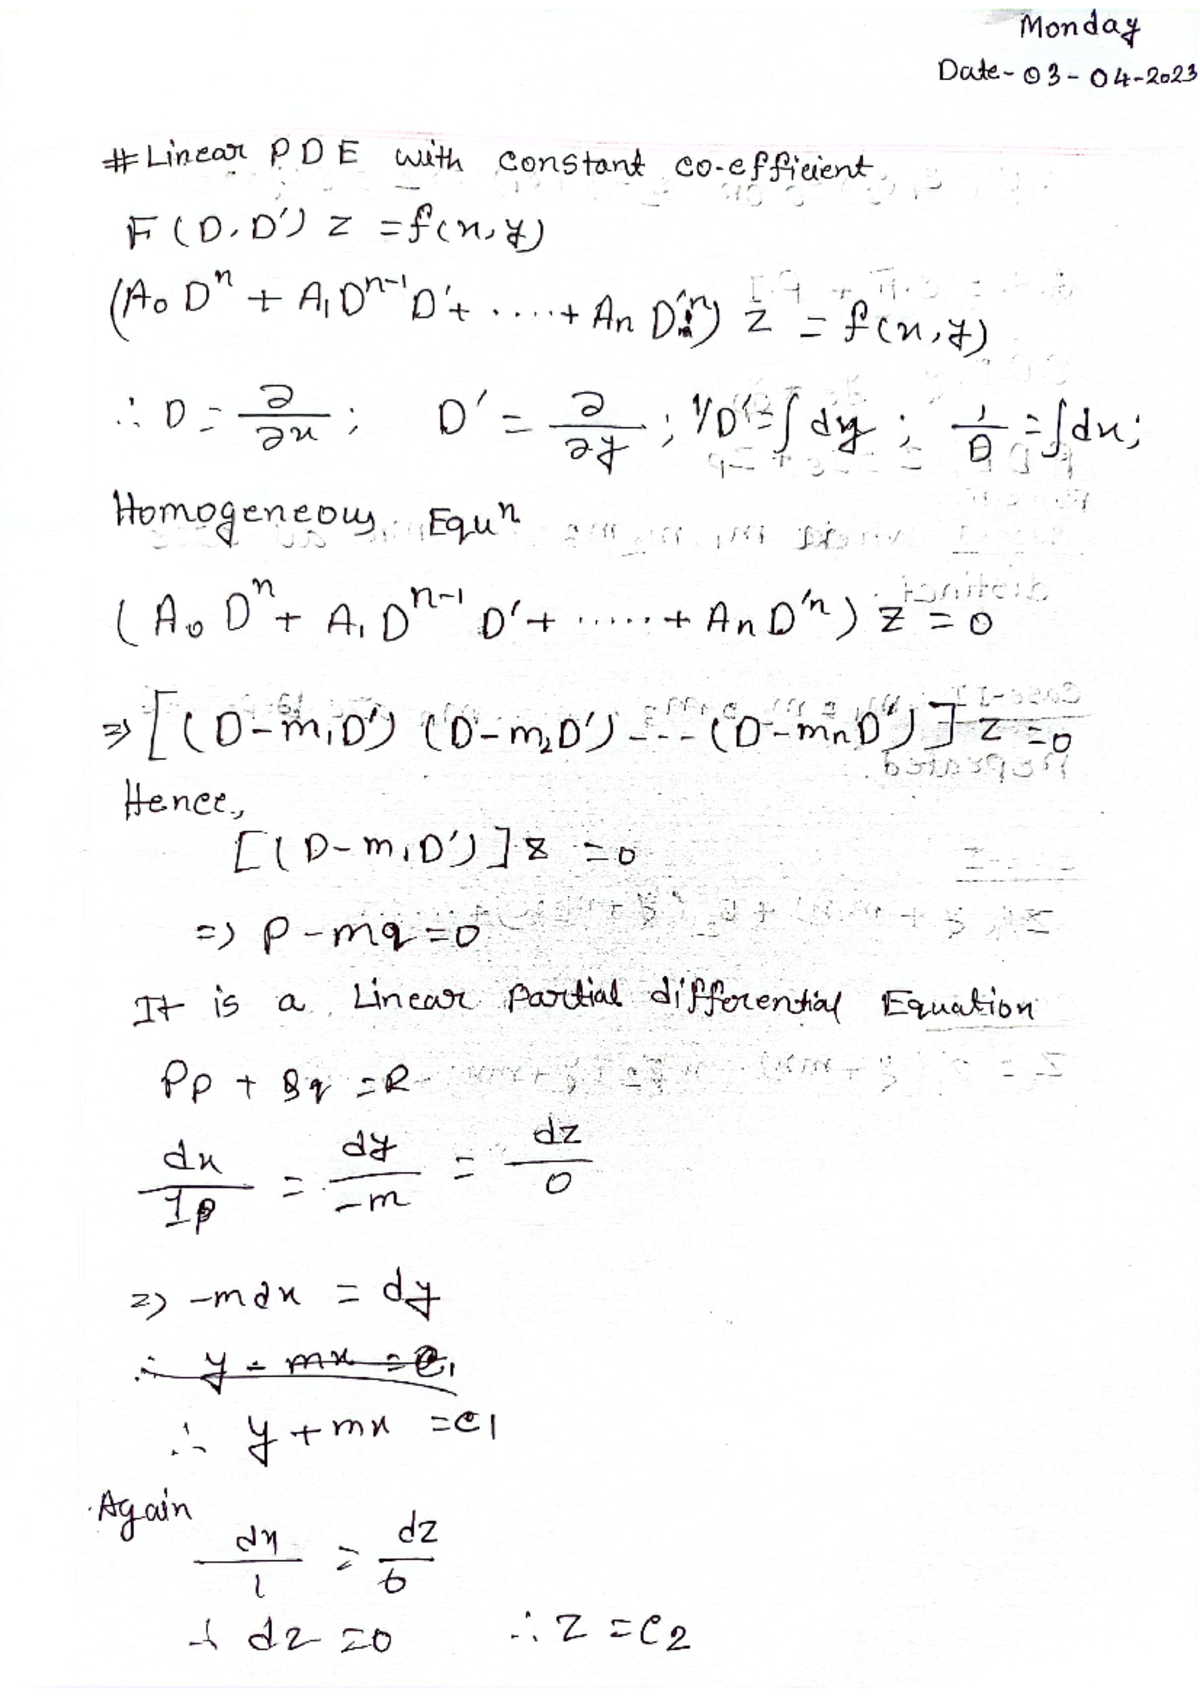 Monday
Date- 03-04-2023
# Linear PDE with constant co-efficient
F(D, D') z = f(x, y)
(A₀ Dⁿ + A₁ Dⁿ⁻¹ D' + ..... + Aₙ D'ⁿ) z = f(x, y)
∴ D = ∂/∂x ; D' = ∂/∂y ; 1/D' = ∫ dy ; 1/D = ∫dx;
Homogeneous Equⁿ
(A₀ Dⁿ + A₁ Dⁿ⁻¹ D' + ..... + Aₙ D'ⁿ) z = 0
⇒ [(D-m₁D') (D-m₂D') --- (D-mₙD')] z = 0
Hence,
[(D-m₁D')] z = 0
⇒ p - mq = 0
It is a Linear partial differential Equation
Pp + Qq = R
dx/1 = dy/-m = dz/0
⇒ -mdx = dy
∴ y - mx = c₁
∴ y + mx = c1
Again
dx/1 = dz/0
dz = 0 ∴ z = c2